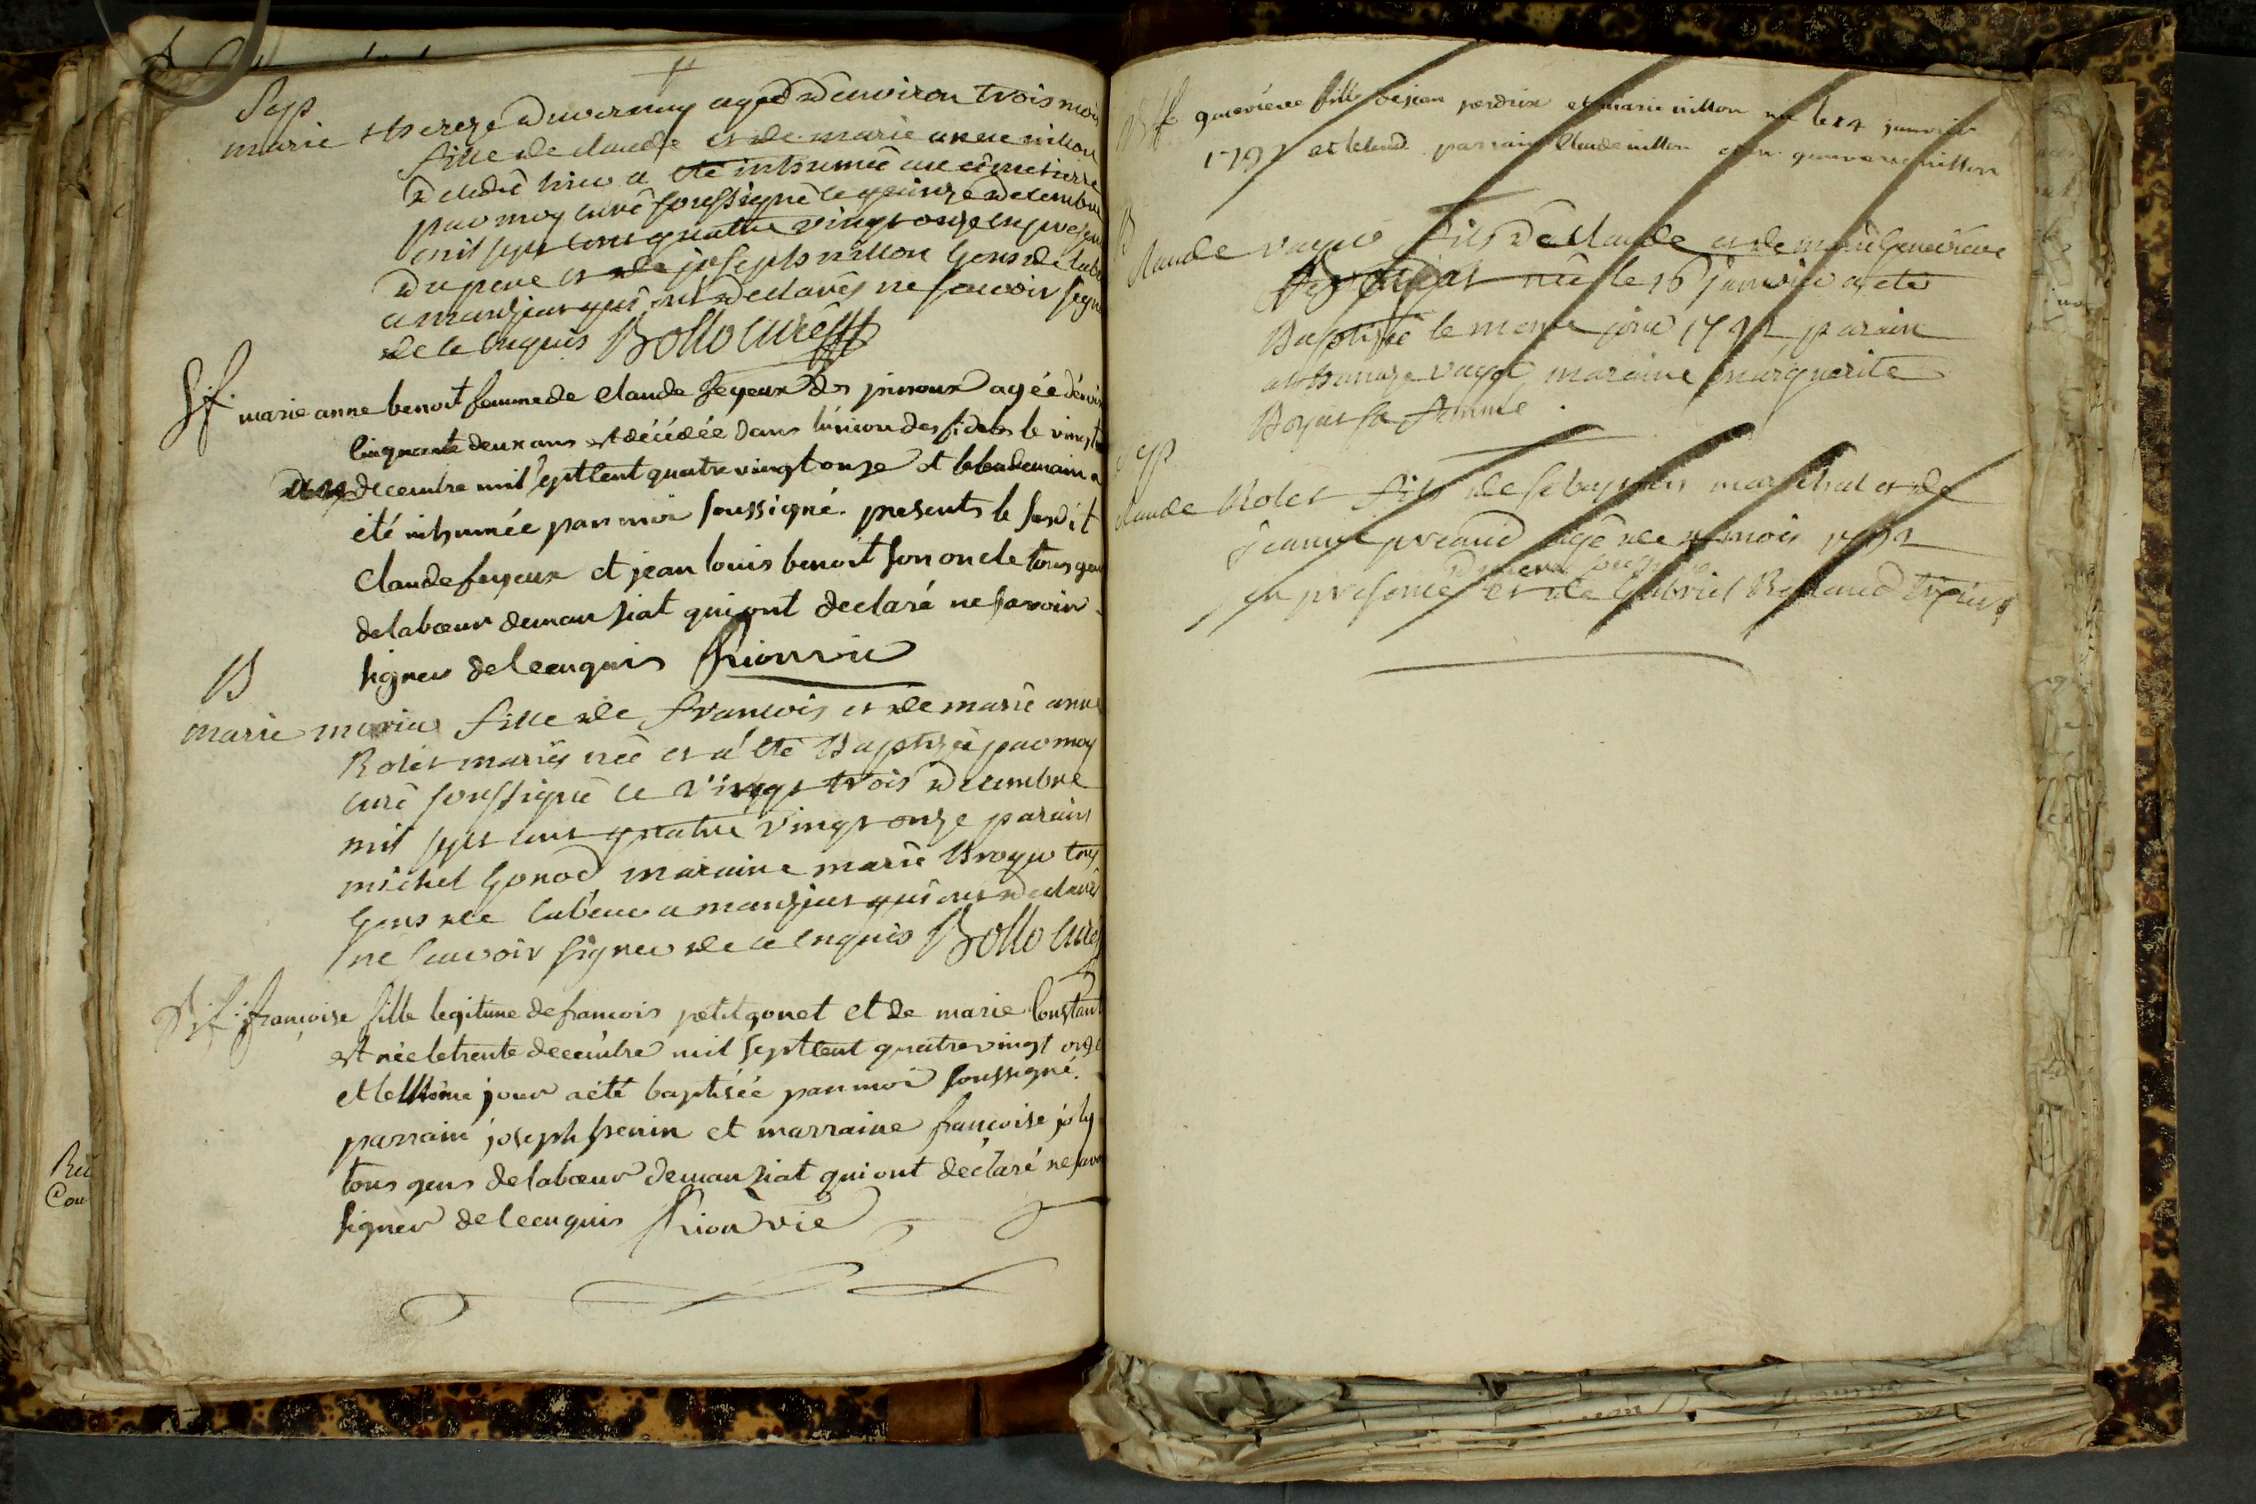 Sep
marie therese Duvernay agéé d'environ trois mois
fille de claude et de marie anne nillon
décédée hier a été inhumée au cimetierre
par moy curé soussigné le quinze decembre
mil sept cent quatre vingt onze en presen
du pere et de joseph nillon gens de labe
a manziat qui ont declarés ne scavoir signe
de ce enquis Bollo curé
Sf. marie anne benoit femme de claude feyeux des pinoux agée d'envir
cinquante deux ans est décédée dans l'union des fideles le vingt
decembre mil sept cent quatre vingt onze et le lendemain a
été inhumée par moi soussigné. presents le susdit
claude feyeux et jean louis benoit son oncle tous gens
de labœur de manziat qui ont declaré ne savoir
signer de ce enquis
B
marie fille de francois et de marie anne
Rolet mariés néé et a été Baptizéé par moy
curé soussigné le vingt trois decembre
mil sept cent quatre vingt onze parain
michel Gonod maraine marie Broyer tous
gens de labeur a manziat qui ont declarés
ne scavoir signer de ce enquis Bollo curé
B.f. françoise fille legitime de francois petitgonet et de marie Constant
est née le trente decembre mil sept cent quatre vingt onze
et le même jour a été baptisée par moi soussigné.
parrain joseph et marraine francoise joly
tous gens de labœur de manziat qui ont déclaré ne savo
signer de ce enquis
Bf genevieve fille de jean perdrix et marie nillon née le 14 janvier
1792 et le lend. parrain Claude nillon genevieve nillon
B
claude fils de claude et de marie Genevieve
né le 16 janvier a été
Baptisé le meme jour 1792 parain
maraine marguerite
Boyat sa femme.
Sep
claude Rolet fils de marechal et de
jeanne agé de mois 1792
en presence et de Gabriel